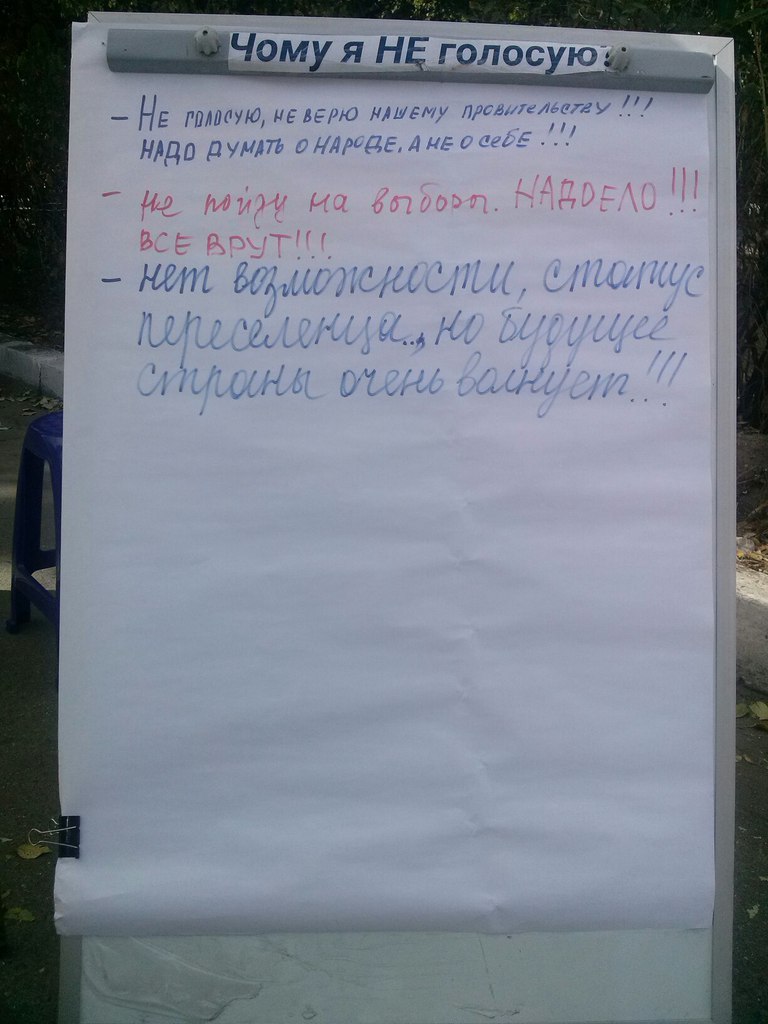 Чому я НЕ голосую?
– Не голосую, не верю нашему провительству!!!
надо думать о народе, а не о себе!!!
– не пойду на выборы. НАДОЕЛО!!!
ВСЕ ВРУТ!!!
– нет возможности, статус
переселенца.., но будущее
страны очень волнует!!!